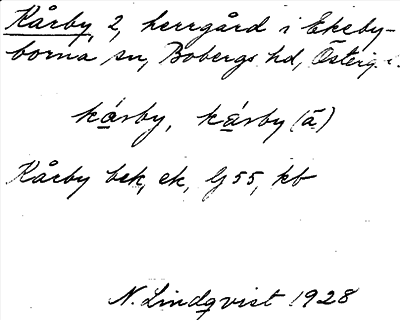 Kårby, 2, herrgård i Ekeby-
borna sn, Bobergs hd, Österg.
kársby, kársby (á)
Kårby bek, ek, G 55, kb
N. Lindqvist 1928